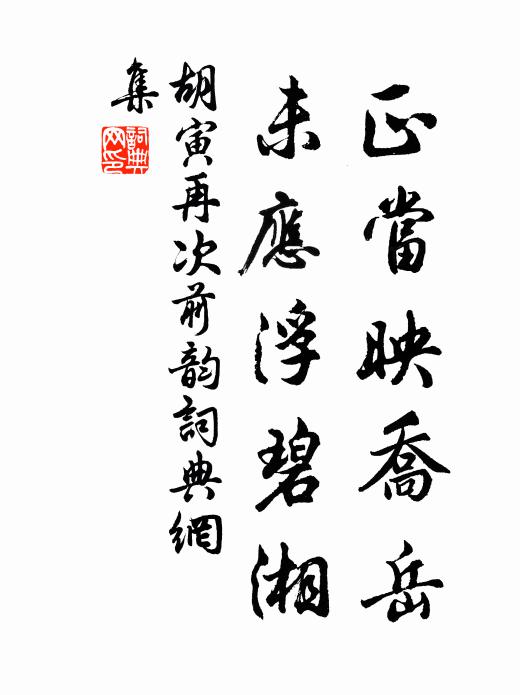 正當映喬岳
未應浮碧湘
胡寅再次前韵詞典網
集
詞典
网印